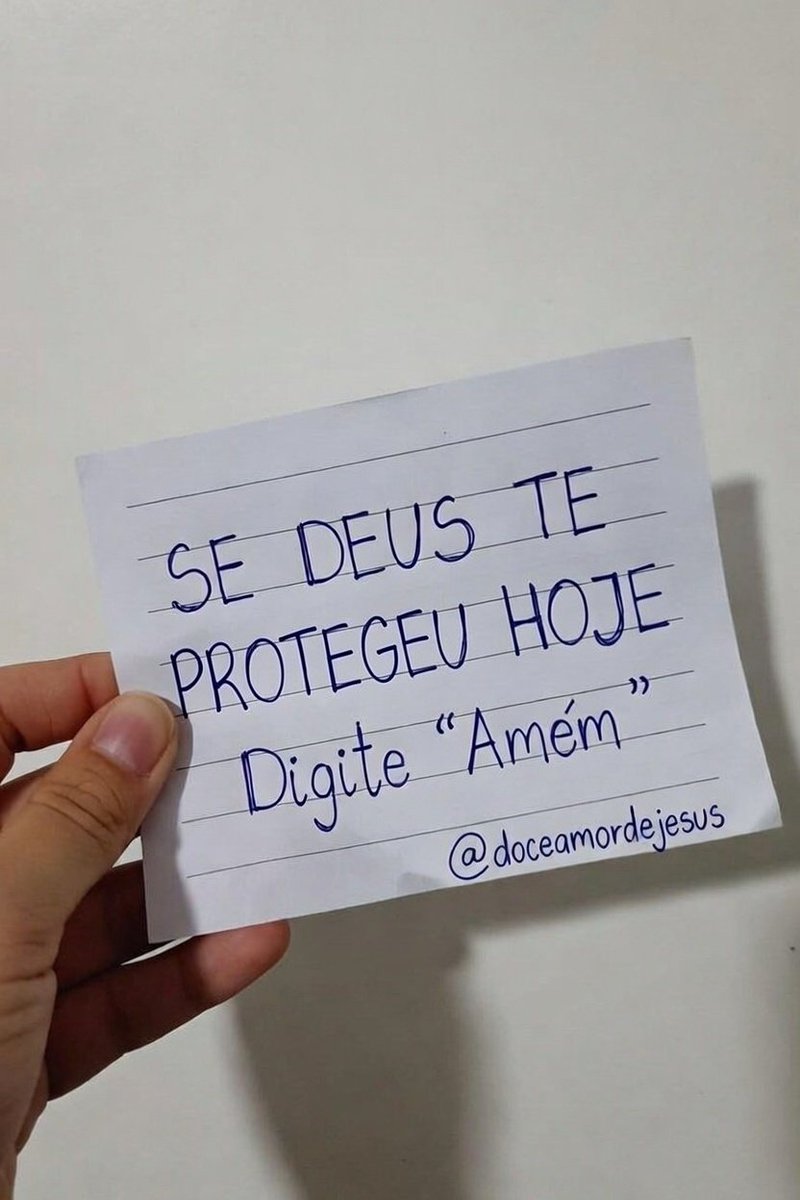 SE DEUS TE
PROTEGEU HOJE
Digite “Amém”
@doceamordejesus